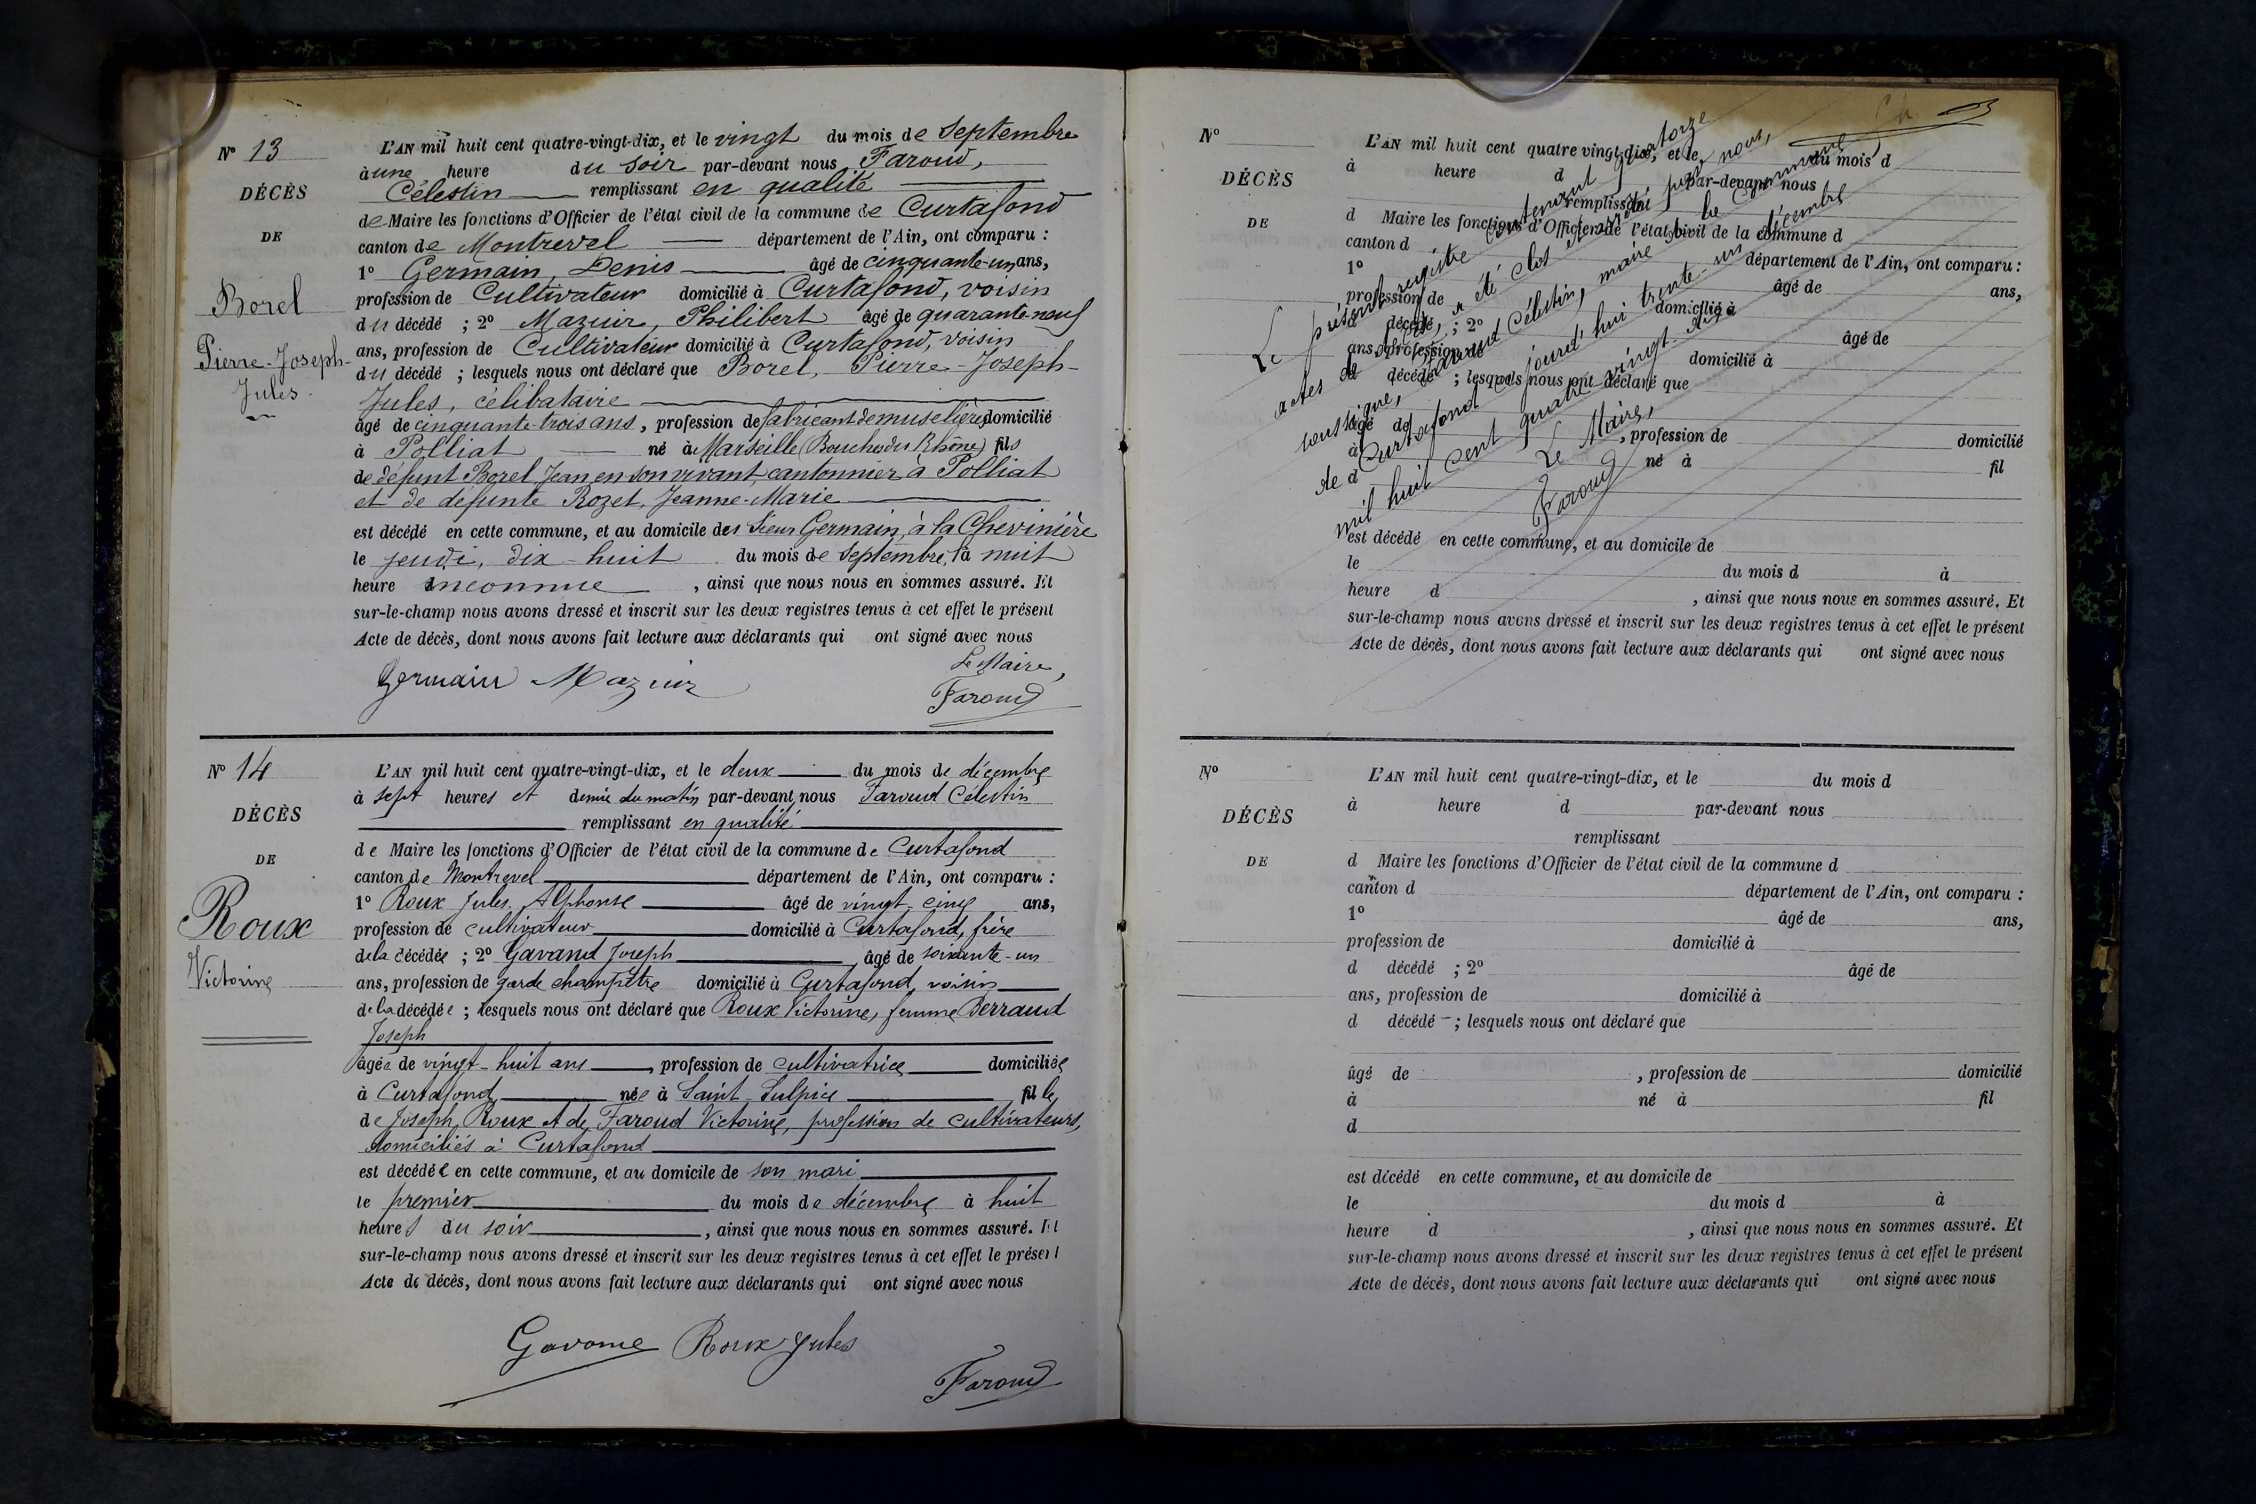 Nº 13
DÉCÈS
DE
Borel
Pierre-Joseph-
Jules.
L'AN mil huit cent quatre-vingt-dix, et le vingt du mois de Septembre
à une heure du soir par-devant nous Faroud,
Célestin remplissant en qualité
de Maire les fonctions d'Officier de l'état civil de la commune de Curtafond
canton de Montrevel département de l'Ain, ont comparu :
1º Germain, Denis âgé de cinquante-un ans,
profession de Cultivateur domicilié à Curtafond, voisin
du décédé ; 2º Mazuir, Philibert âgé de quarante-neuf
ans, profession de Cultivateur domicilié à Curtafond, voisin
du décédé ; lesquels nous ont déclaré que Borel, Pierre-Joseph-
Jules, célibataire
âgé de cinquante-trois ans, profession de fabricant de muselières domicilié
à Polliat né à Marseille (Bouches du Rhône) fils
de défunt Borel Jean en son vivant cantonnier à Polliat
et de défunte Rozet, Jeanne-Marie
est décédé en cette commune, et au domicile de Sieur Germain, à la Chevinière
le jeudi, dix-huit du mois de Septembre, à nuit
heure inconnue , ainsi que nous nous en sommes assuré. Et
sur-le-champ nous avons dressé et inscrit sur les deux registres tenus à cet effet le présent
Acte de décès, dont nous avons fait lecture aux déclarants qui ont signé avec nous
Le Maire,
Germain Mazuir
Faroud
Nº 14
DÉCÈS
DE
Roux
Victorine
L'AN mil huit cent quatre-vingt-dix, et le deux du mois de décembre
à sept heures et demie du matin par-devant nous Faroud Célestin
remplissant en qualité
de Maire les fonctions d'Officier de l'état civil de la commune de Curtafond
canton de Montrevel département de l'Ain, ont comparu :
1º Roux Jules Alphonse âgé de vingt-cinq ans,
profession de cultivateur domicilié à Curtafond, frère
de la décédée ; 2º Gavand Joseph âgé de soixante-un
ans, profession de garde champêtre domicilié à Curtafond, voisin
de la décédée ; lesquels nous ont déclaré que Roux Victorine, femme Berraud
Joseph
âgée de vingt-huit ans, profession de cultivatrice domiciliée
à Curtafond née à Saint Sulpice fille
de Joseph Roux et de Faroud Victorine, profession de cultivateurs,
domiciliés à Curtafond
est décédée en cette commune, et au domicile de son mari
le premier du mois de décembre à huit
heures du soir , ainsi que nous nous en sommes assuré. Et
sur-le-champ nous avons dressé et inscrit sur les deux registres tenus à cet effet le présent
Acte de décès, dont nous avons fait lecture aux déclarants qui ont signé avec nous
Roux Jules
Faroud
Nº
DÉCÈS
DE
L'AN mil huit cent quatre vingt-dix, et le du mois d
à heure d par-devant nous
remplissant
d Maire les fonctions d'Officier de l'état civil de la commune d
canton d département de l'Ain, ont comparu :
1º âgé de ans,
profession de domicilié à
d décédé ; 2º âgé de
ans, profession de domicilié à
d décédé ; lesquels nous ont déclaré que
âgé de , profession de domicilié
à né à fil
d
est décédé en cette commune, et au domicile de
le du mois d à
heure d , ainsi que nous nous en sommes assuré. Et
sur-le-champ nous avons dressé et inscrit sur les deux registres tenus à cet effet le présent
Acte de décès, dont nous avons fait lecture aux déclarants qui ont signé avec nous
Le présent registre contenant quatorze
actes de décès, a été clos et arrêté par nous,
soussigné, Faroud Célestin, maire de la commune
de Curtafond ce jourd'hui trente-un décembre
mil huit cent quatre vingt-dix
Le Maire,
Faroud
Nº
DÉCÈS
DE
L'AN mil huit cent quatre-vingt-dix, et le du mois d
à heure d par-devant nous
remplissant
d Maire les fonctions d'Officier de l'état civil de la commune d
canton d département de l'Ain, ont comparu :
1º âgé de ans,
profession de domicilié à
d décédé ; 2º âgé de
ans, profession de domicilié à
d décédé ; lesquels nous ont déclaré que
âgé de , profession de domicilié
à né à fil
d
est décédé en cette commune, et au domicile de
le du mois d à
heure d , ainsi que nous nous en sommes assuré. Et
sur-le-champ nous avons dressé et inscrit sur les deux registres tenus à cet effet le présent
Acte de décès, dont nous avons fait lecture aux déclarants qui ont signé avec nous